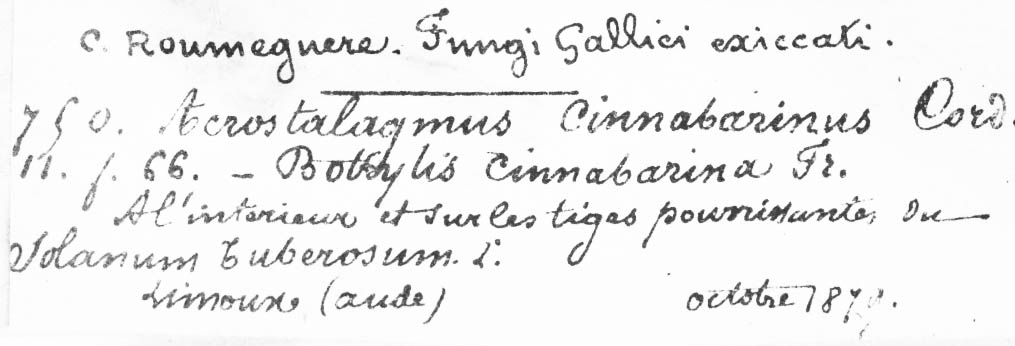 C. Roumeguere. Fungi Gallici exiccati.
750. Acrostalagmus Cinnabarinus Cord.
11. f. 66. – Bothrytis Cinnabarina Fr.
A l'interieur et sur les tiges pourrissantes du
Solanum tuberosum. L.
Limoux (aude) octobre 1879.